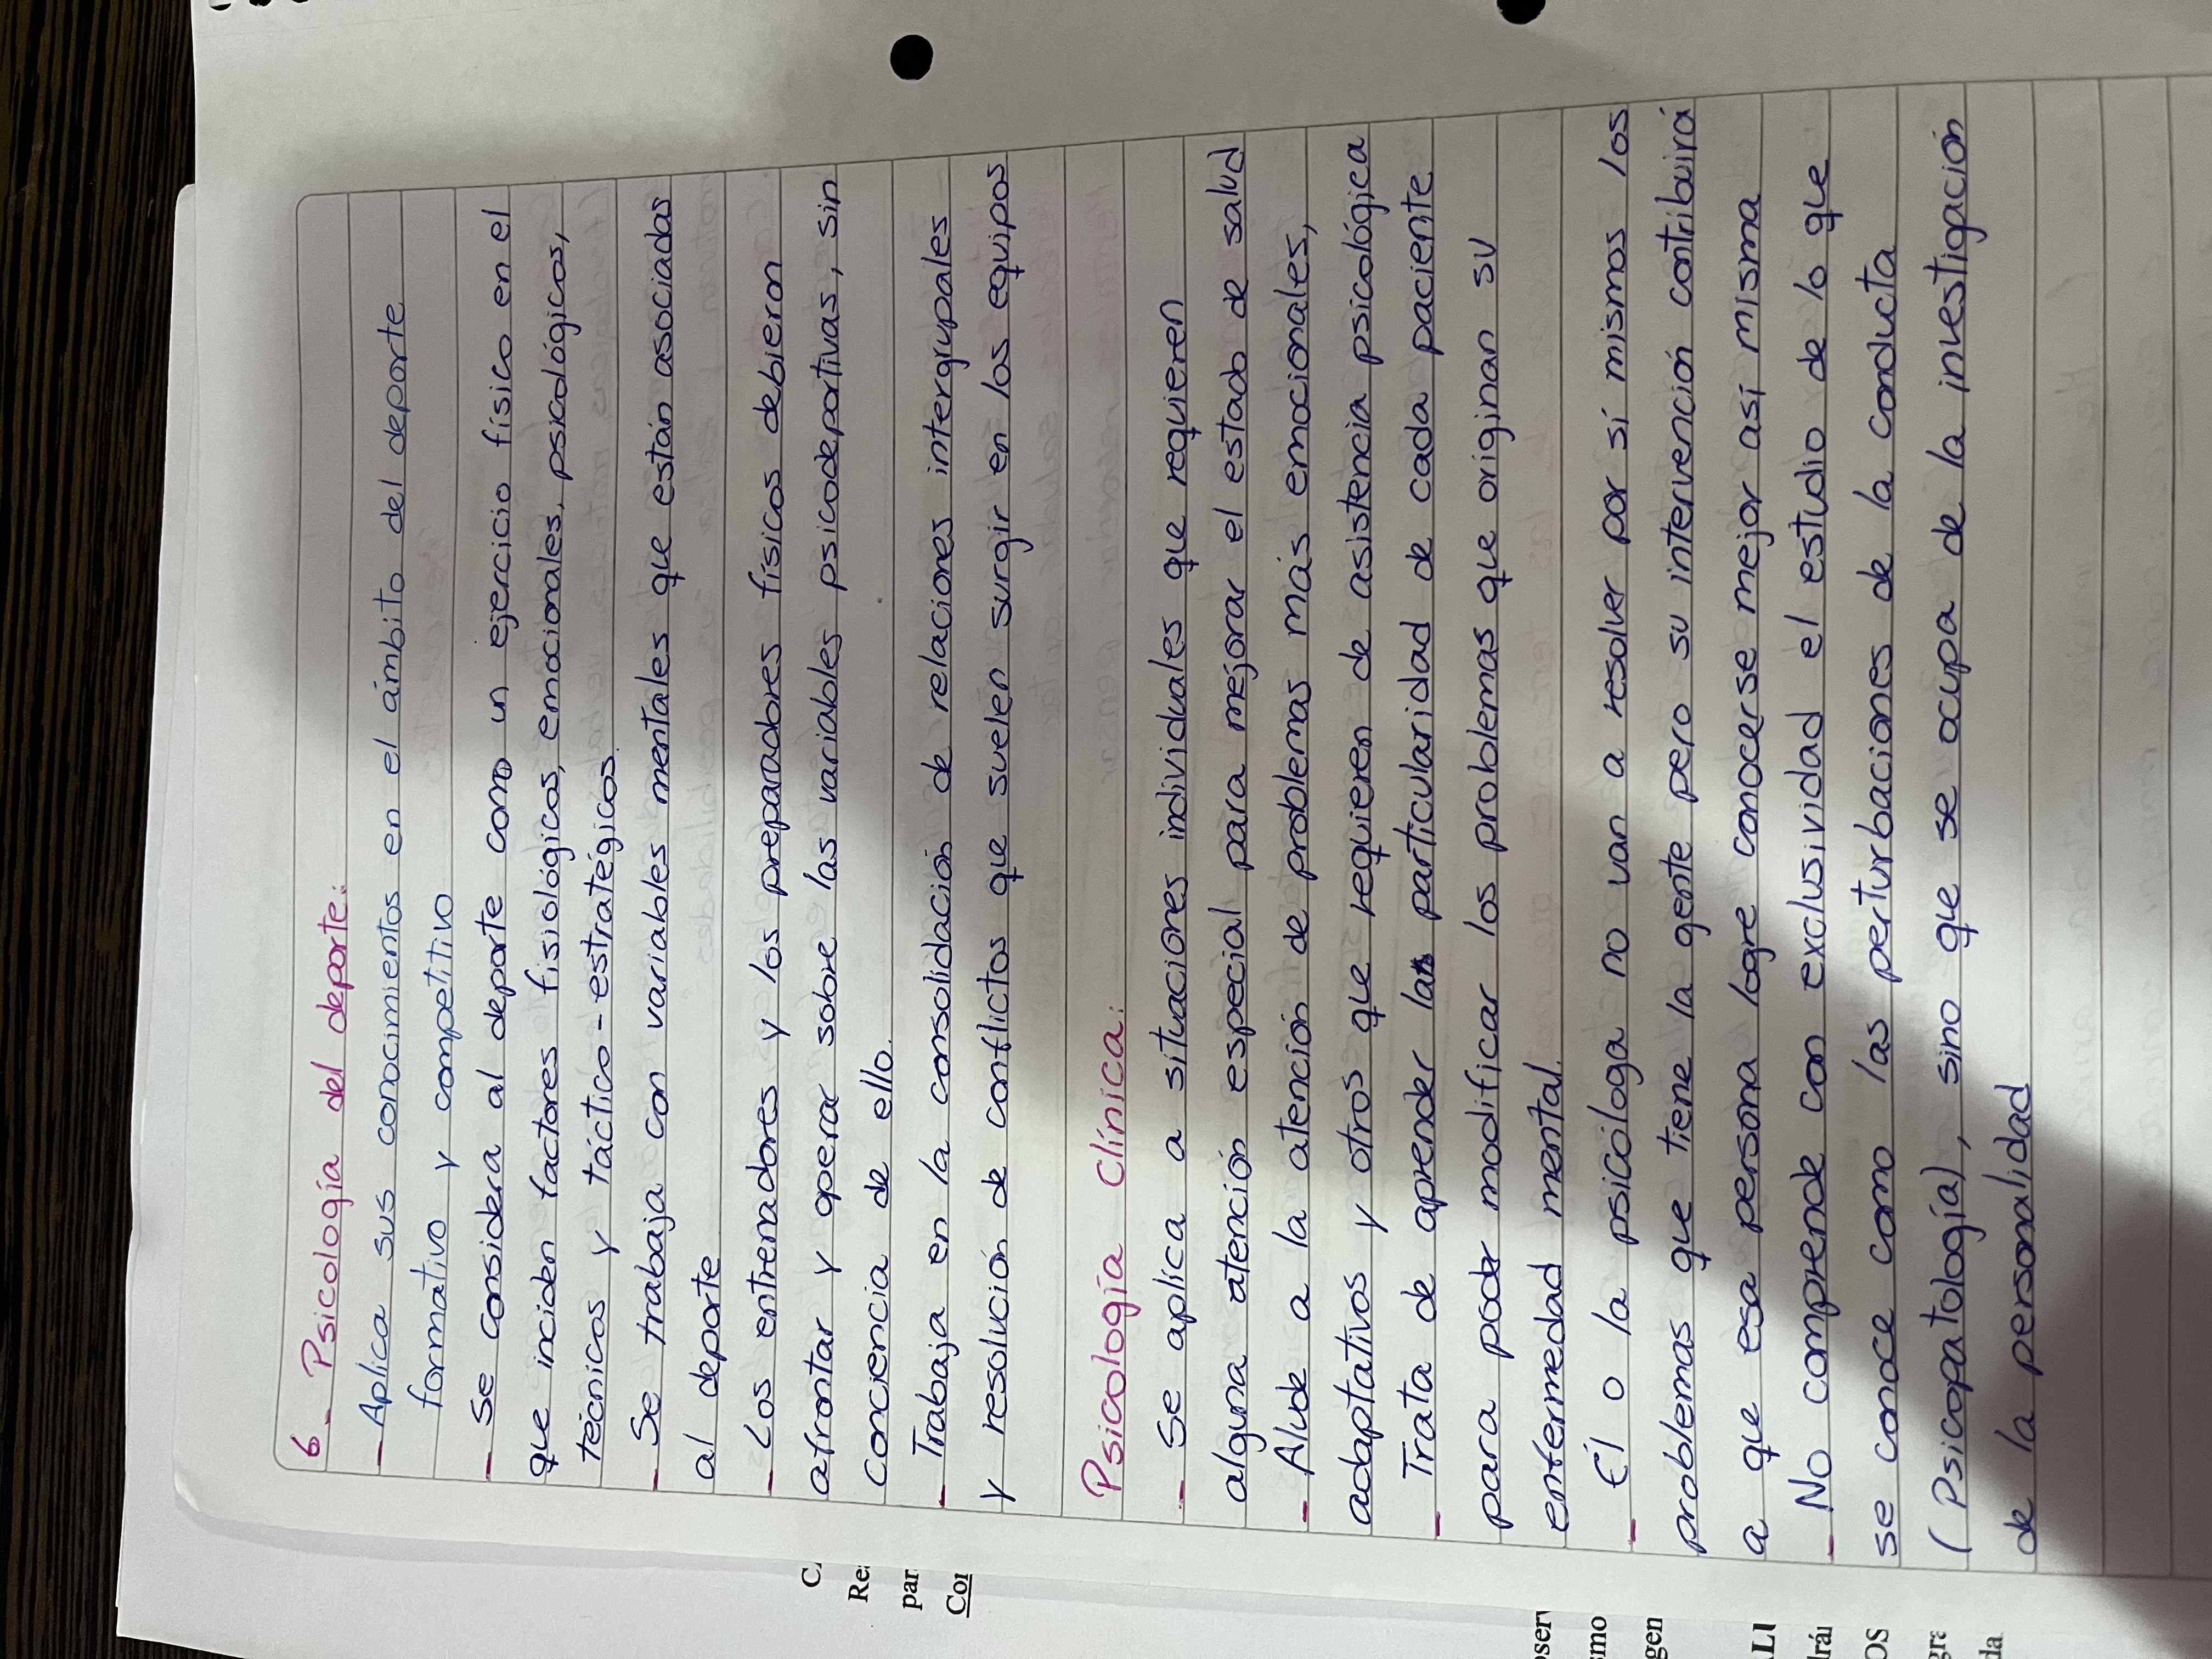 6_ Psicología del deporte:
- Aplica sus conocimientos en el ámbito del deporte
formativo y competitivo
- Se considera al deporte como un ejercicio físico en el
que inciden factores fisiológicos, emocionales, psicológicos,
técnicos y táctico-estratégicos.
- Se trabaja con variables mentales que están asociadas
al deporte
- Los entrenadores y los preparadores físicos debieron
afrontar y operar sobre las variables psicodeportivas, sin
conciencia de ello.
- Trabaja en la consolidación de relaciones intergrupales
y resolución de conflictos que suelen surgir en los equipos
Psicología Clínica:
- Se aplica a situaciones individuales que requieren
alguna atención especial para mejorar el estado de salud
- Alude a la atención de problemas más emocionales,
adaptativos y otros que requieren de asistencia psicológica
- Trata de aprender la particularidad de cada paciente
para poder modificar los problemas que originan su
enfermedad mental.
- Él o la psicóloga no van a resolver por sí mismos los
problemas que tiene la gente pero su intervención contribuirá
a que esa persona logre conocerse mejor así misma
- No comprende con exclusividad el estudio de lo que
se conoce como las perturbaciones de la conducta
(Psicopatología), sino que se ocupa de la investigación
de la personalidad